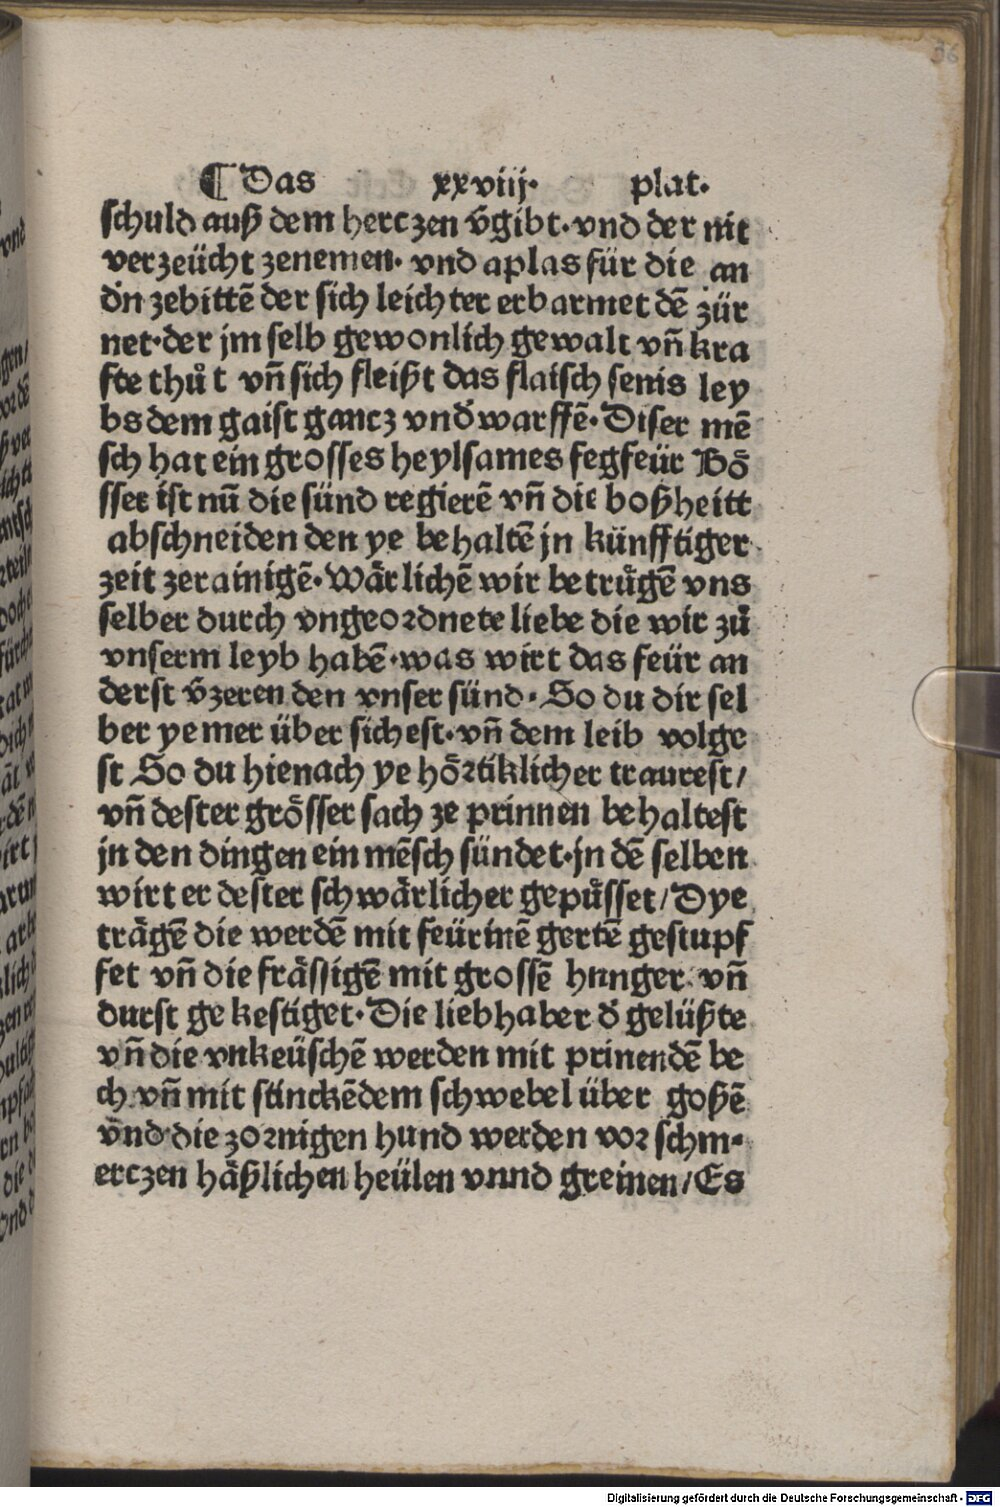 36
¶ Das xxviij· plat·
schuld auß dem herczen v̄gibt·vnd der nit
verzeücht zenemen· vnd aplas für die an
dn̄ zebittē der sich leichter erbarmet dē zür
net·der jm selb gewonlich gewalt vn̄ kra
fte thůt vn̄ sich fleißt das flaisch senis ley
bs dem gaist gancz vnd̄warffē· Diser mē
sch hat ein grosses heylsames fegfeür Bȫ
sser ist nū die sünd regierē vn̄ die boßheitt
abschneiden den ye behaltē jn künfftiger
zeit zerainigē· Wärlichē wir betrůgē vns
selber durch vngeordnete liebe die wir zů
vnserm leyb habē·was wirt das feür an
derst v̄zeren den vnser sünd· So du dir sel
ber yemer über sichest· vn̄ dem leib volge
st So du hienach ye hörtiklicher traurest/
vn̄ dester grösser sach ze prinnen behaltest
jn den dingen ein mēsch sündet·jn dē selben
wirt er dester schwärlicher gepůsset/Dye
trägē die werdē mit feürinē gertē gestupf
fet vn̄ die frässigē mit grossē hnnger vn̄
durst gekestiget· Die liebhaber d̄ gelüßte
vn̄ die vnkeüschē werden mit prinendē be
ch vn̄ mit stinckēdem schwebel über goßē
vnd die zornigen hund werden vor schm·
erczen häßlichen heülen vnnd greinen/Es
Digitalisierung gefördert durch die Deutsche Forschungsgemeinschaft · DFG